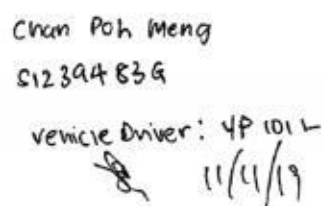 Chan Poh Meng
S1239483G
Vehicle Driver: YP 101 L
11/11/19